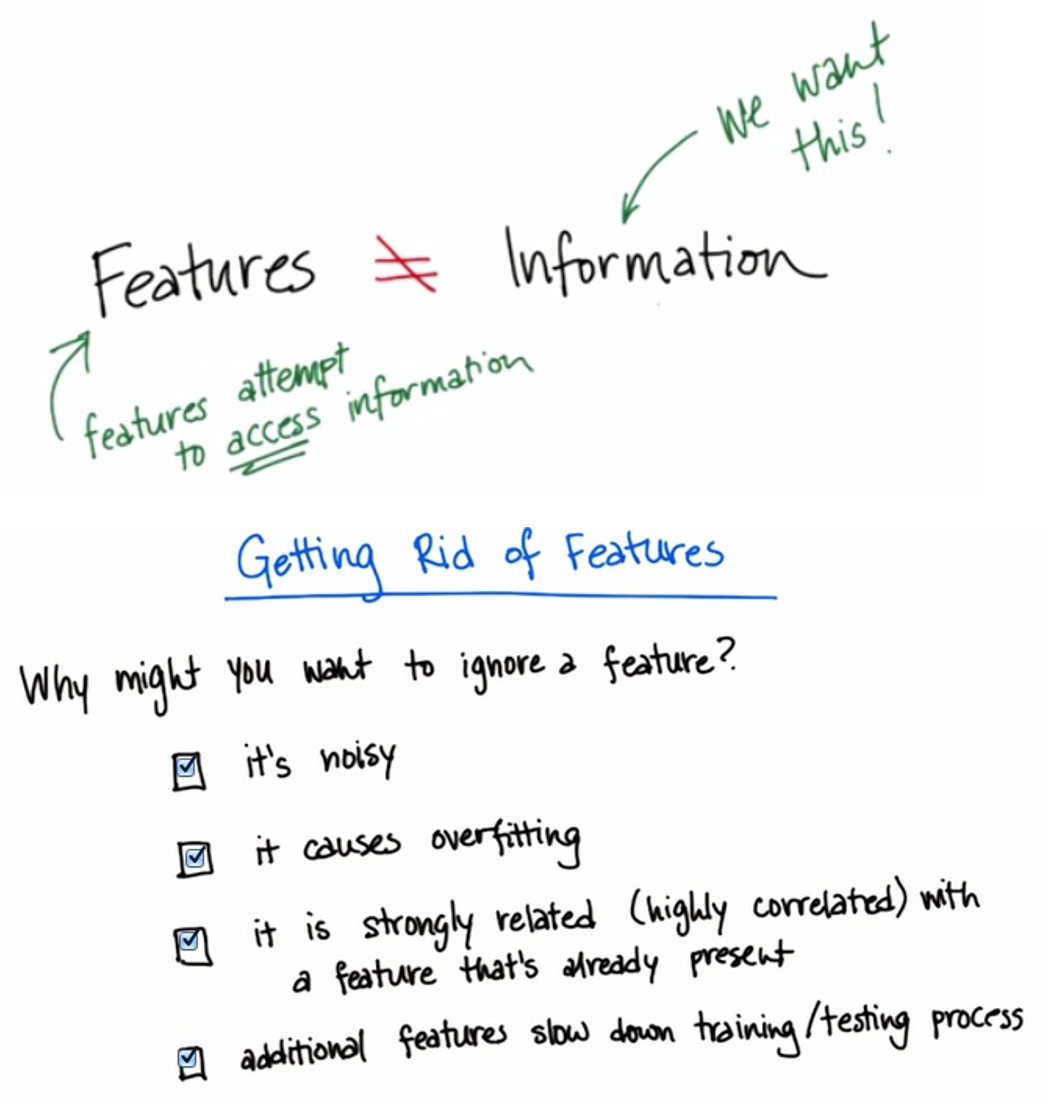 we want
this!
Features ≠ Information
features attempt
to access information
Getting Rid of Features
Why might you want to ignore a feature?
it's noisy
it causes overfitting
it is strongly related (highly correlated) with
a feature that's already present
additional features slow down training/testing process